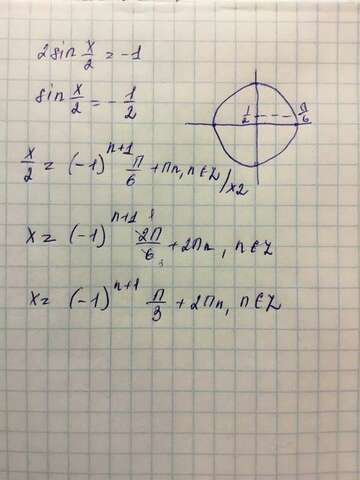 2sin x/2 = -1
sin x/2 = -1/2
1/2 π/6
x/2 = (-1)^(n+1) π/6 + πn, n∈Z /×2
x = (-1)^(n+1) 2π/6 + 2πn, n∈Z
1 3
x = (-1)^(n+1) π/3 + 2πn, n∈Z